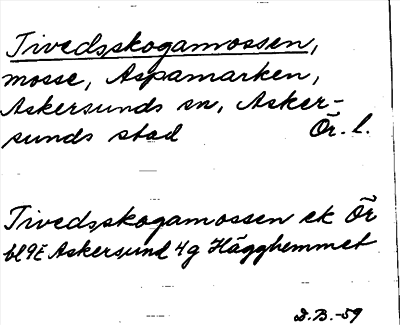 Tivedsskogamossen,
mosse, Aspamarken,
Askersunds sn, Asker-
sunds stad Ör. l.
Tivedsskogamossen ek Ör
bl 9E Askersund 4g Hägghemmet
D.B.-59